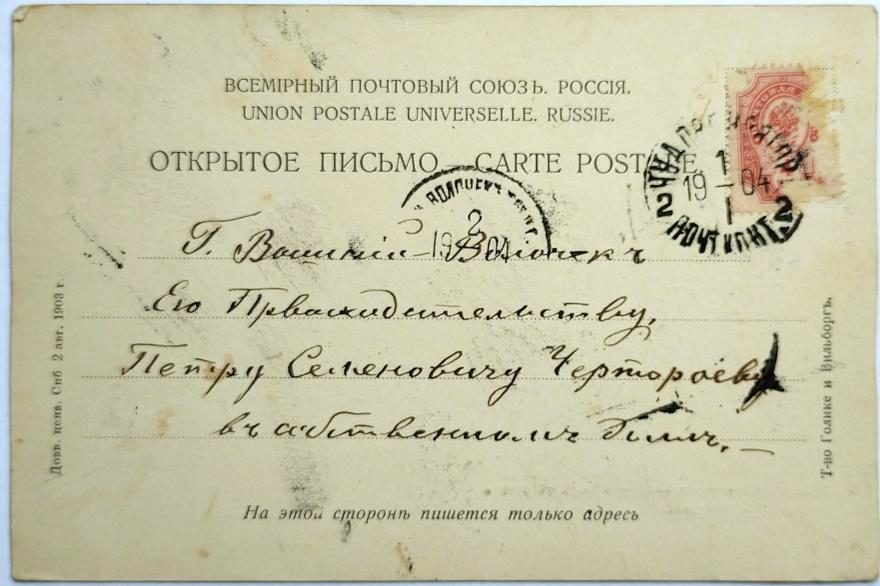 ВСЕМІРНЫЙ ПОЧТОВЫЙ СОЮЗЪ. РОССІЯ.
UNION POSTALE UNIVERSELLE. RUSSIE.
ОТКРЫТОЕ ПИСЬМО — CARTE POSTALE
1
19 – 04
1
2 2
2
19 04
Г. Вышній-Волочекъ
Его Превосходительству,
Петру Семеновичу Чертороеву
въ собственномъ домѣ,
На этой сторонѣ пишется только адресъ
Дозв. ценз. Спб 2 авг. 1903 г.
Т-во Голике и Вильборгъ.